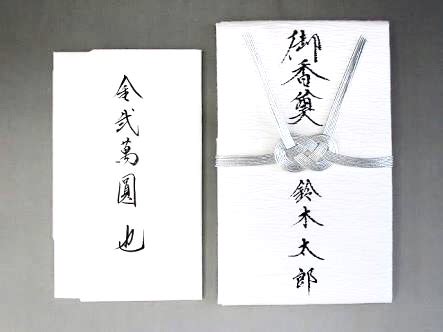 御香奠
鈴木太郎
金弐萬圓也